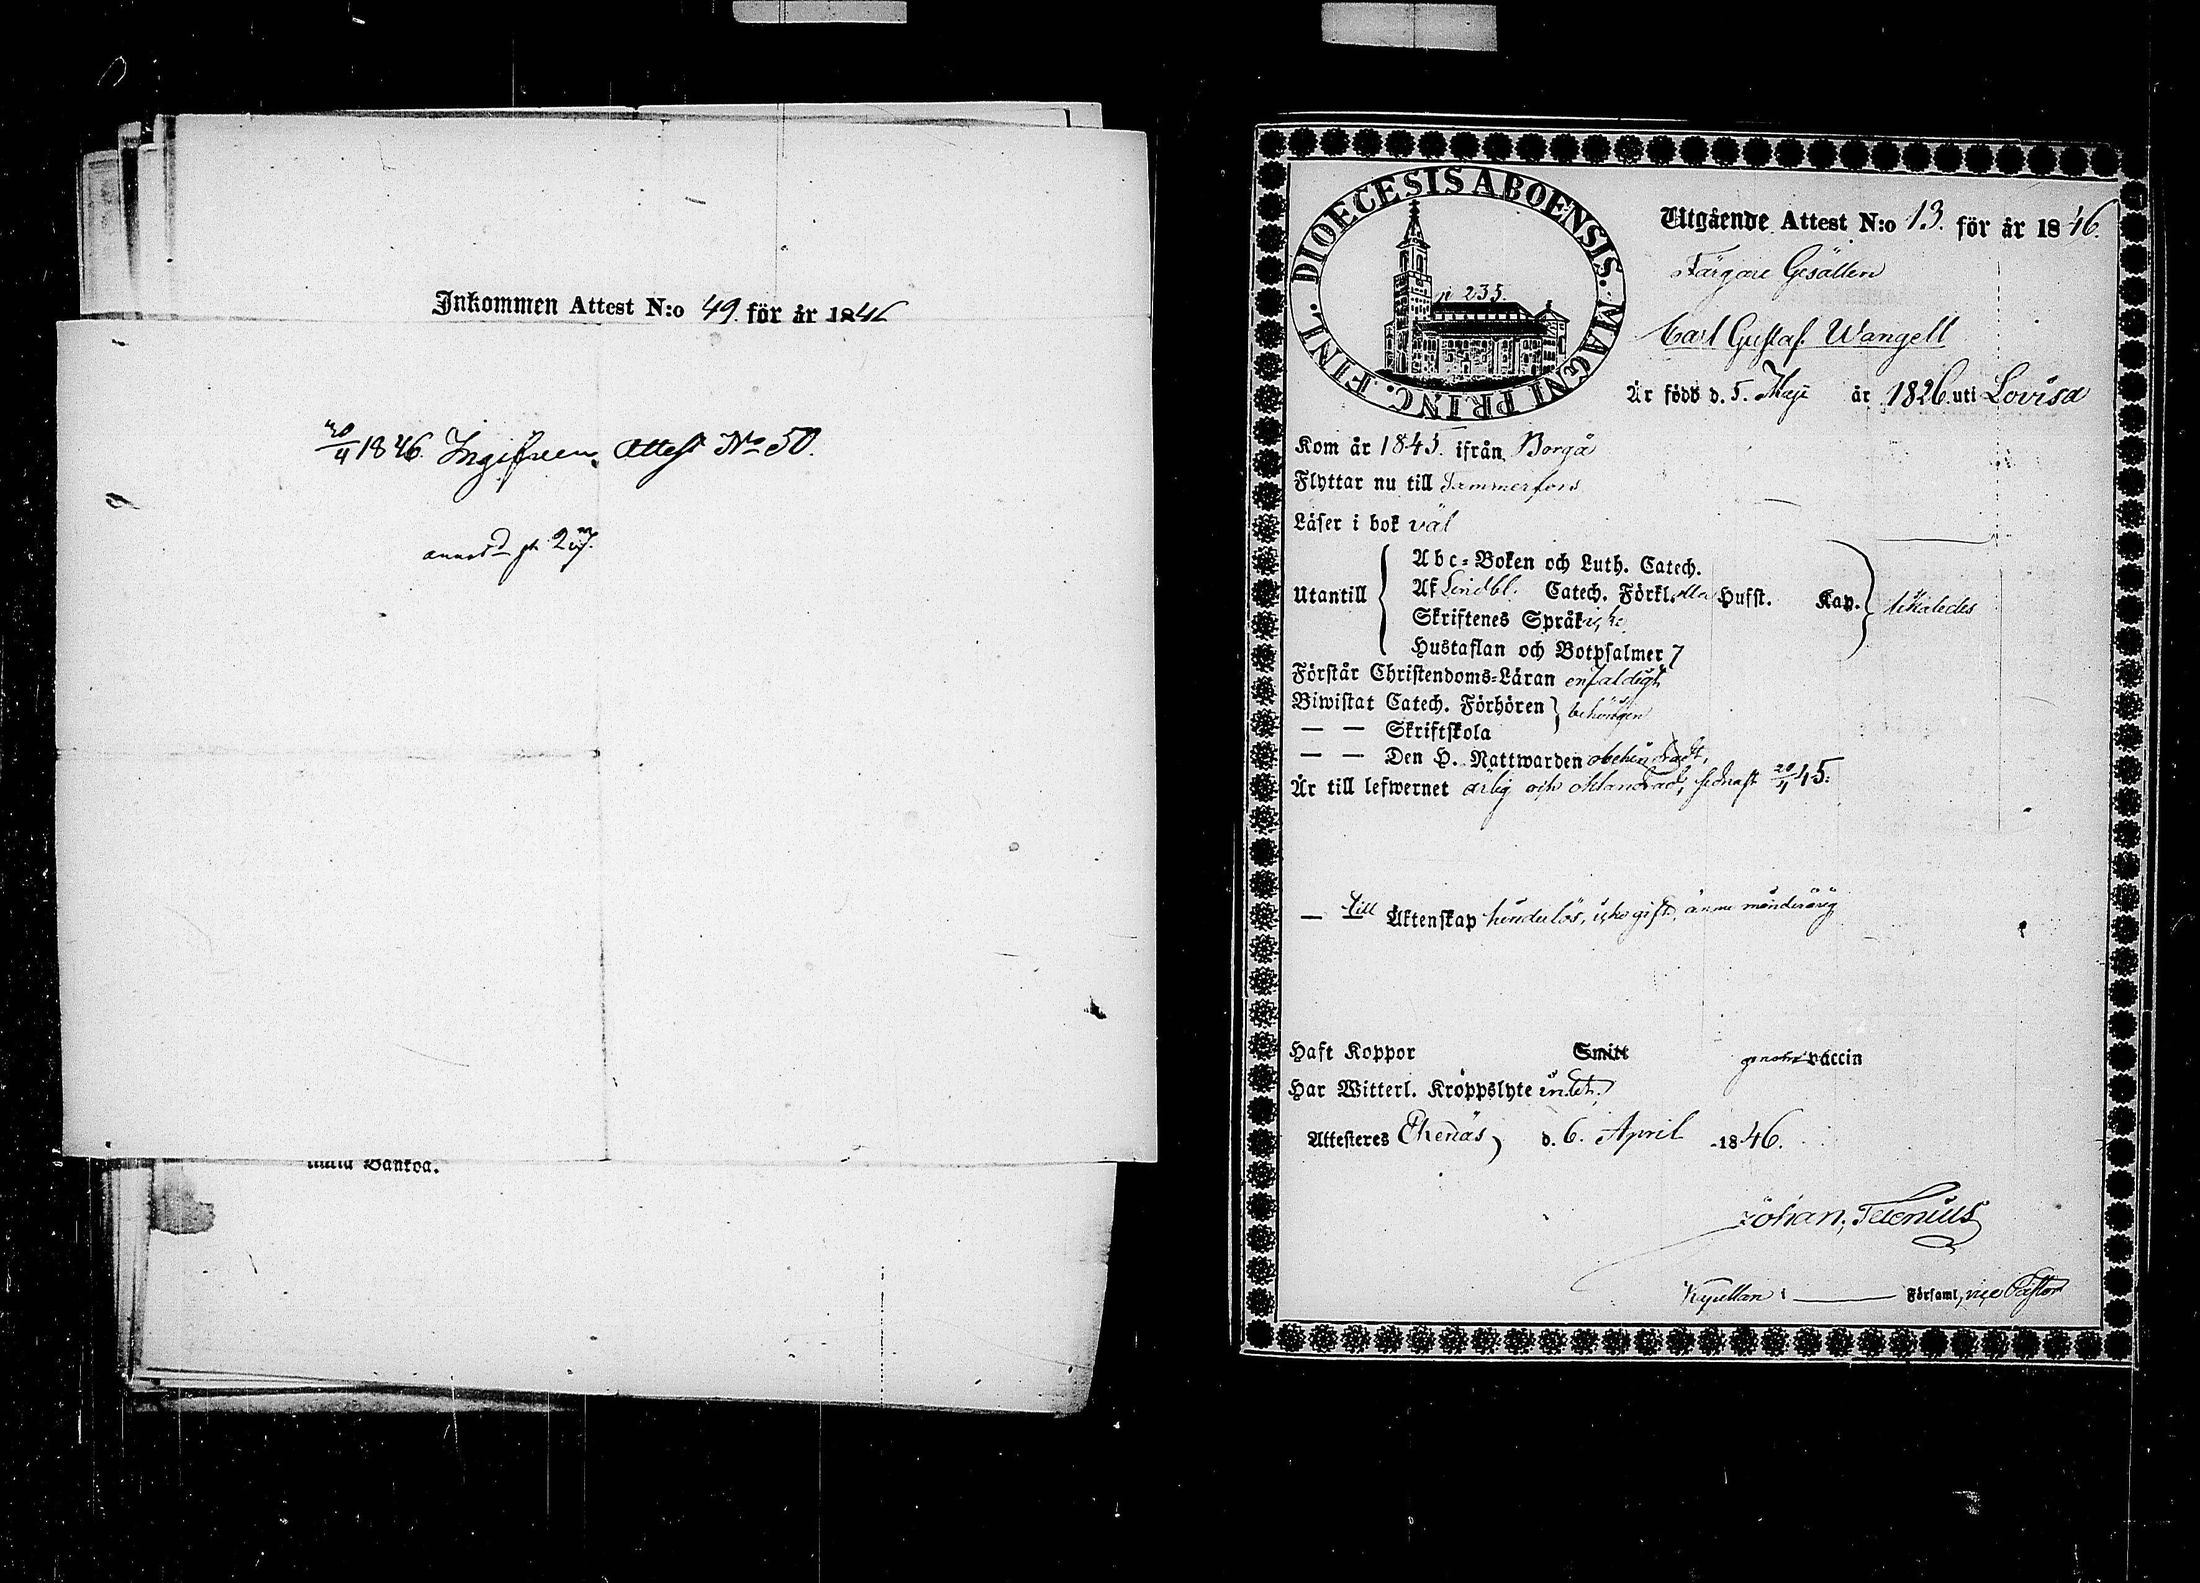 Inkommen Attest N:o 49. för år 1846
20/4 1846. Ingifven Attest No 50.
Bankoa.
DIOECESIS ABOENSIS. MAGNI PRINC. FINL.
p 235.
Utgående Attest N:o 13. för år 1846.
Färgare Gesällen
Carl Gustaf Wangell
Är född d. 5. Maji år 1826. uti Lovisa
Kom år 1845. ifrån Borgå
Flyttar nu till Tammerfors
Läser i bok väl
Utantill
Abc-Boken och Luth. Catech.
Af Lindbl. Catech. Förkl. alla Hufst. Kap. likaledes
Skriftenes Språk icke
Hustaflan och Botpsalmer 7
Förstår Christendoms-Läran enfaldigt
Biwistat Catech. Förhören behörigen
— — Skriftskola
— — Den H. Nattwarden obehindradt,
Är till lefwernet ärlig och oklandrad, sednast 20/4 45.
— till Äktenskap hinderlös, icke gift, ännu minderårig
Haft Koppor Smitt genom vaccin
Har Witterl. Kroppslyte intet.
Attesteres Ekenäs, d. 6. April 1846.
Johan Telenius
Kapellan i — Församl, vice Pastor